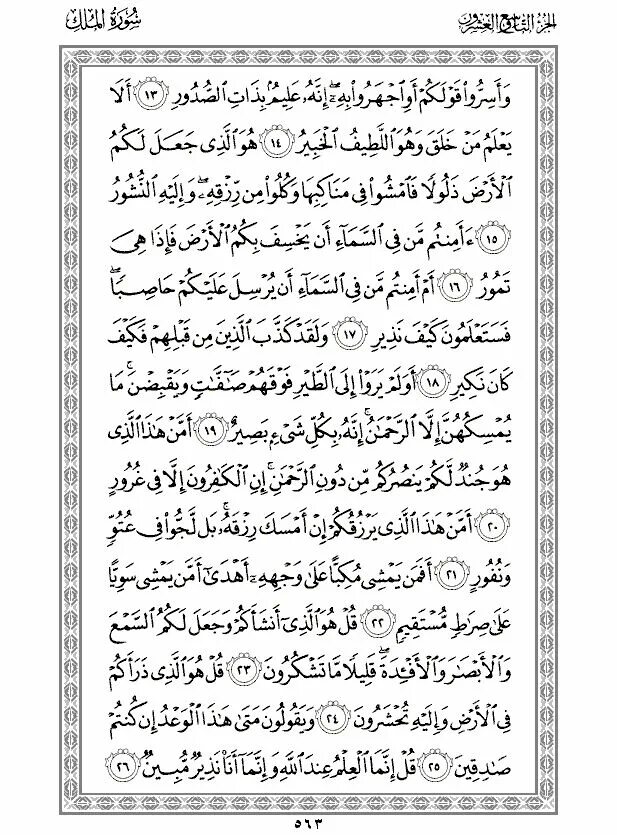 الجزء التاسع والعشرون
سُورَةُ المُلك
وَأَسِرُّوا۟ قَوْلَكُمْ أَوِ ٱجْهَرُوا۟ بِهِۦٓ ۖ إِنَّهُۥ عَلِيمٌۢ بِذَاتِ ٱلصُّدُورِ ١٣ أَلَا
يَعْلَمُ مَنْ خَلَقَ وَهُوَ ٱللَّطِيفُ ٱلْخَبِيرُ ١٤ هُوَ ٱلَّذِى جَعَلَ لَكُمُ
ٱلْأَرْضَ ذَلُولًا فَٱمْشُوا۟ فِى مَنَاكِبِهَا وَكُلُوا۟ مِن رِّزْقِهِۦ ۖ وَإِلَيْهِ ٱلنُّشُورُ
١٥ ءَأَمِنتُم مَّن فِى ٱلسَّمَآءِ أَن يَخْسِفَ بِكُمُ ٱلْأَرْضَ فَإِذَا هِىَ
تَمُورُ ١٦ أَمْ أَمِنتُم مَّن فِى ٱلسَّمَآءِ أَن يُرْسِلَ عَلَيْكُمْ حَاصِبًا ۖ
فَسَتَعْلَمُونَ كَيْفَ نَذِيرِ ١٧ وَلَقَدْ كَذَّبَ ٱلَّذِينَ مِن قَبْلِهِمْ فَكَيْفَ
كَانَ نَكِيرِ ١٨ أَوَلَمْ يَرَوْا۟ إِلَى ٱلطَّيْرِ فَوْقَهُمْ صَٰٓفَّٰتٍ وَيَقْبِضْنَ ۚ مَا
يُمْسِكُهُنَّ إِلَّا ٱلرَّحْمَٰنُ ۚ إِنَّهُۥ بِكُلِّ شَىْءٍۭ بَصِيرٌ ١٩ أَمَّنْ هَٰذَا ٱلَّذِى
هُوَ جُندٌ لَّكُمْ يَنصُرُكُم مِّن دُونِ ٱلرَّحْمَٰنِ ۚ إِنِ ٱلْكَٰفِرُونَ إِلَّا فِى غُرُورٍ
٢٠ أَمَّنْ هَٰذَا ٱلَّذِى يَرْزُقُكُمْ إِنْ أَمْسَكَ رِزْقَهُۥ ۚ بَل لَّجُّوا۟ فِى عُتُوٍّ
وَنُفُورٍ ٢١ أَفَمَن يَمْشِى مُكِبًّا عَلَىٰ وَجْهِهِۦٓ أَهْدَىٰٓ أَمَّن يَمْشِى سَوِيًّا
عَلَىٰ صِرَٰطٍ مُّسْتَقِيمٍ ٢٢ قُلْ هُوَ ٱلَّذِىٓ أَنشَأَكُمْ وَجَعَلَ لَكُمُ ٱلسَّمْعَ
وَٱلْأَبْصَٰرَ وَٱلْأَفْـِٔدَةَ ۖ قَلِيلًا مَّا تَشْكُرُونَ ٢٣ قُلْ هُوَ ٱلَّذِى ذَرَأَكُمْ
فِى ٱلْأَرْضِ وَإِلَيْهِ تُحْشَرُونَ ٢٤ وَيَقُولُونَ مَتَىٰ هَٰذَا ٱلْوَعْدُ إِن كُنتُمْ
صَٰدِقِينَ ٢٥ قُلْ إِنَّمَا ٱلْعِلْمُ عِندَ ٱللَّهِ وَإِنَّمَآ أَنَا۠ نَذِيرٌ مُّبِينٌ ٢٦
٥٦٣